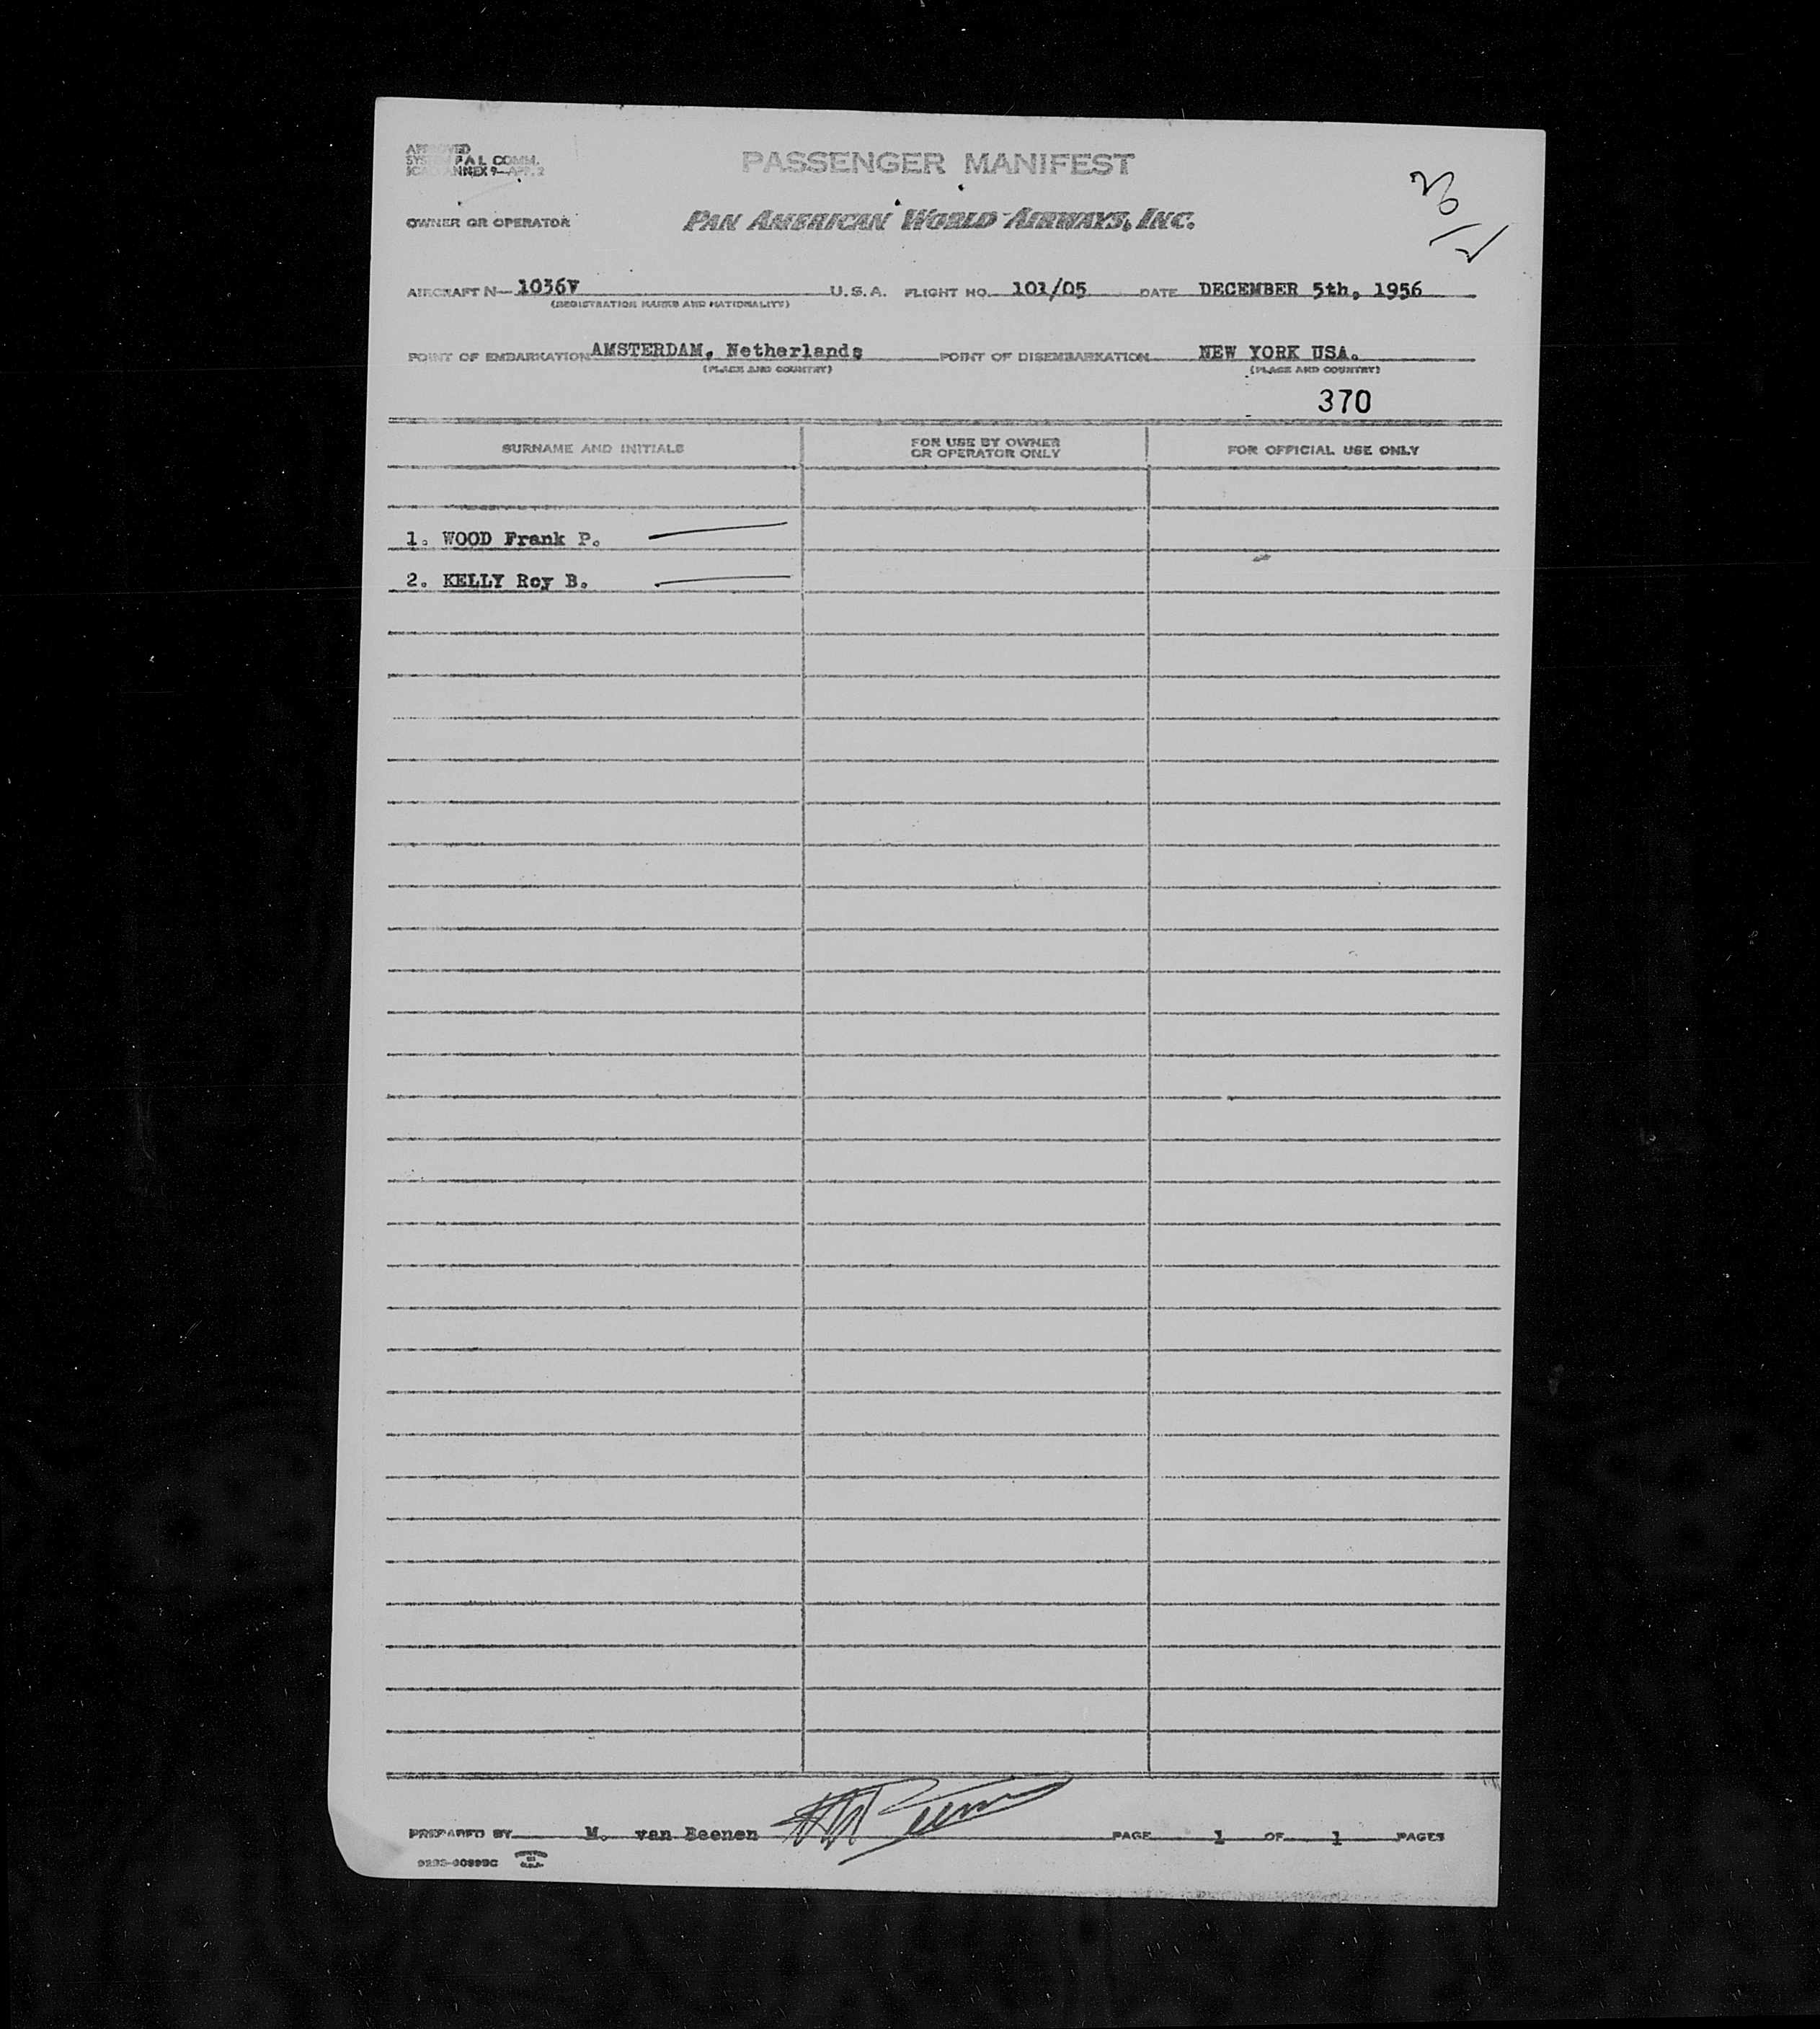 APPROVED
SYSTEM P A L COMM.
ICAO ANNEX 9—APP. 2
PASSENGER MANIFEST
OWNER OR OPERATOR
PAN AMERICAN WORLD AIRWAYS, INC.
AIRCRAFT N— 1036V U.S.A. FLIGHT NO. 101/05 DATE DECEMBER 5th, 1956
(REGISTRATION MARKS AND NATIONALITY)
POINT OF EMBARKATION AMSTERDAM, Netherlands POINT OF DISEMBARKATION NEW YORK USA.
(PLACE AND COUNTRY) (PLACE AND COUNTRY)
370
SURNAME AND INITIALS
FOR USE BY OWNER
OR OPERATOR ONLY
FOR OFFICIAL USE ONLY
1. WOOD Frank P.
2. KELLY Roy B.
PREPARED BY M. van Beenen PAGE 1 OF 1 PAGES
PRINTED
IN
U.S.A.